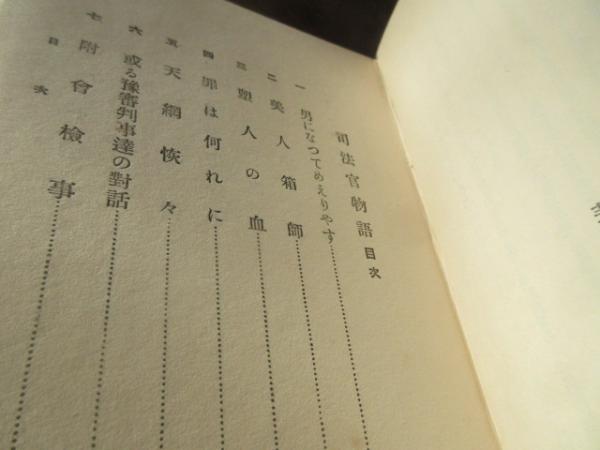 司法官物語 目次
一 男になつてめえりやす
二 美人箱師
三 聖人の血
四 罪は何れに
五 天網恢々
六 或る豫審判事達の對話
七 附會檢事
目次